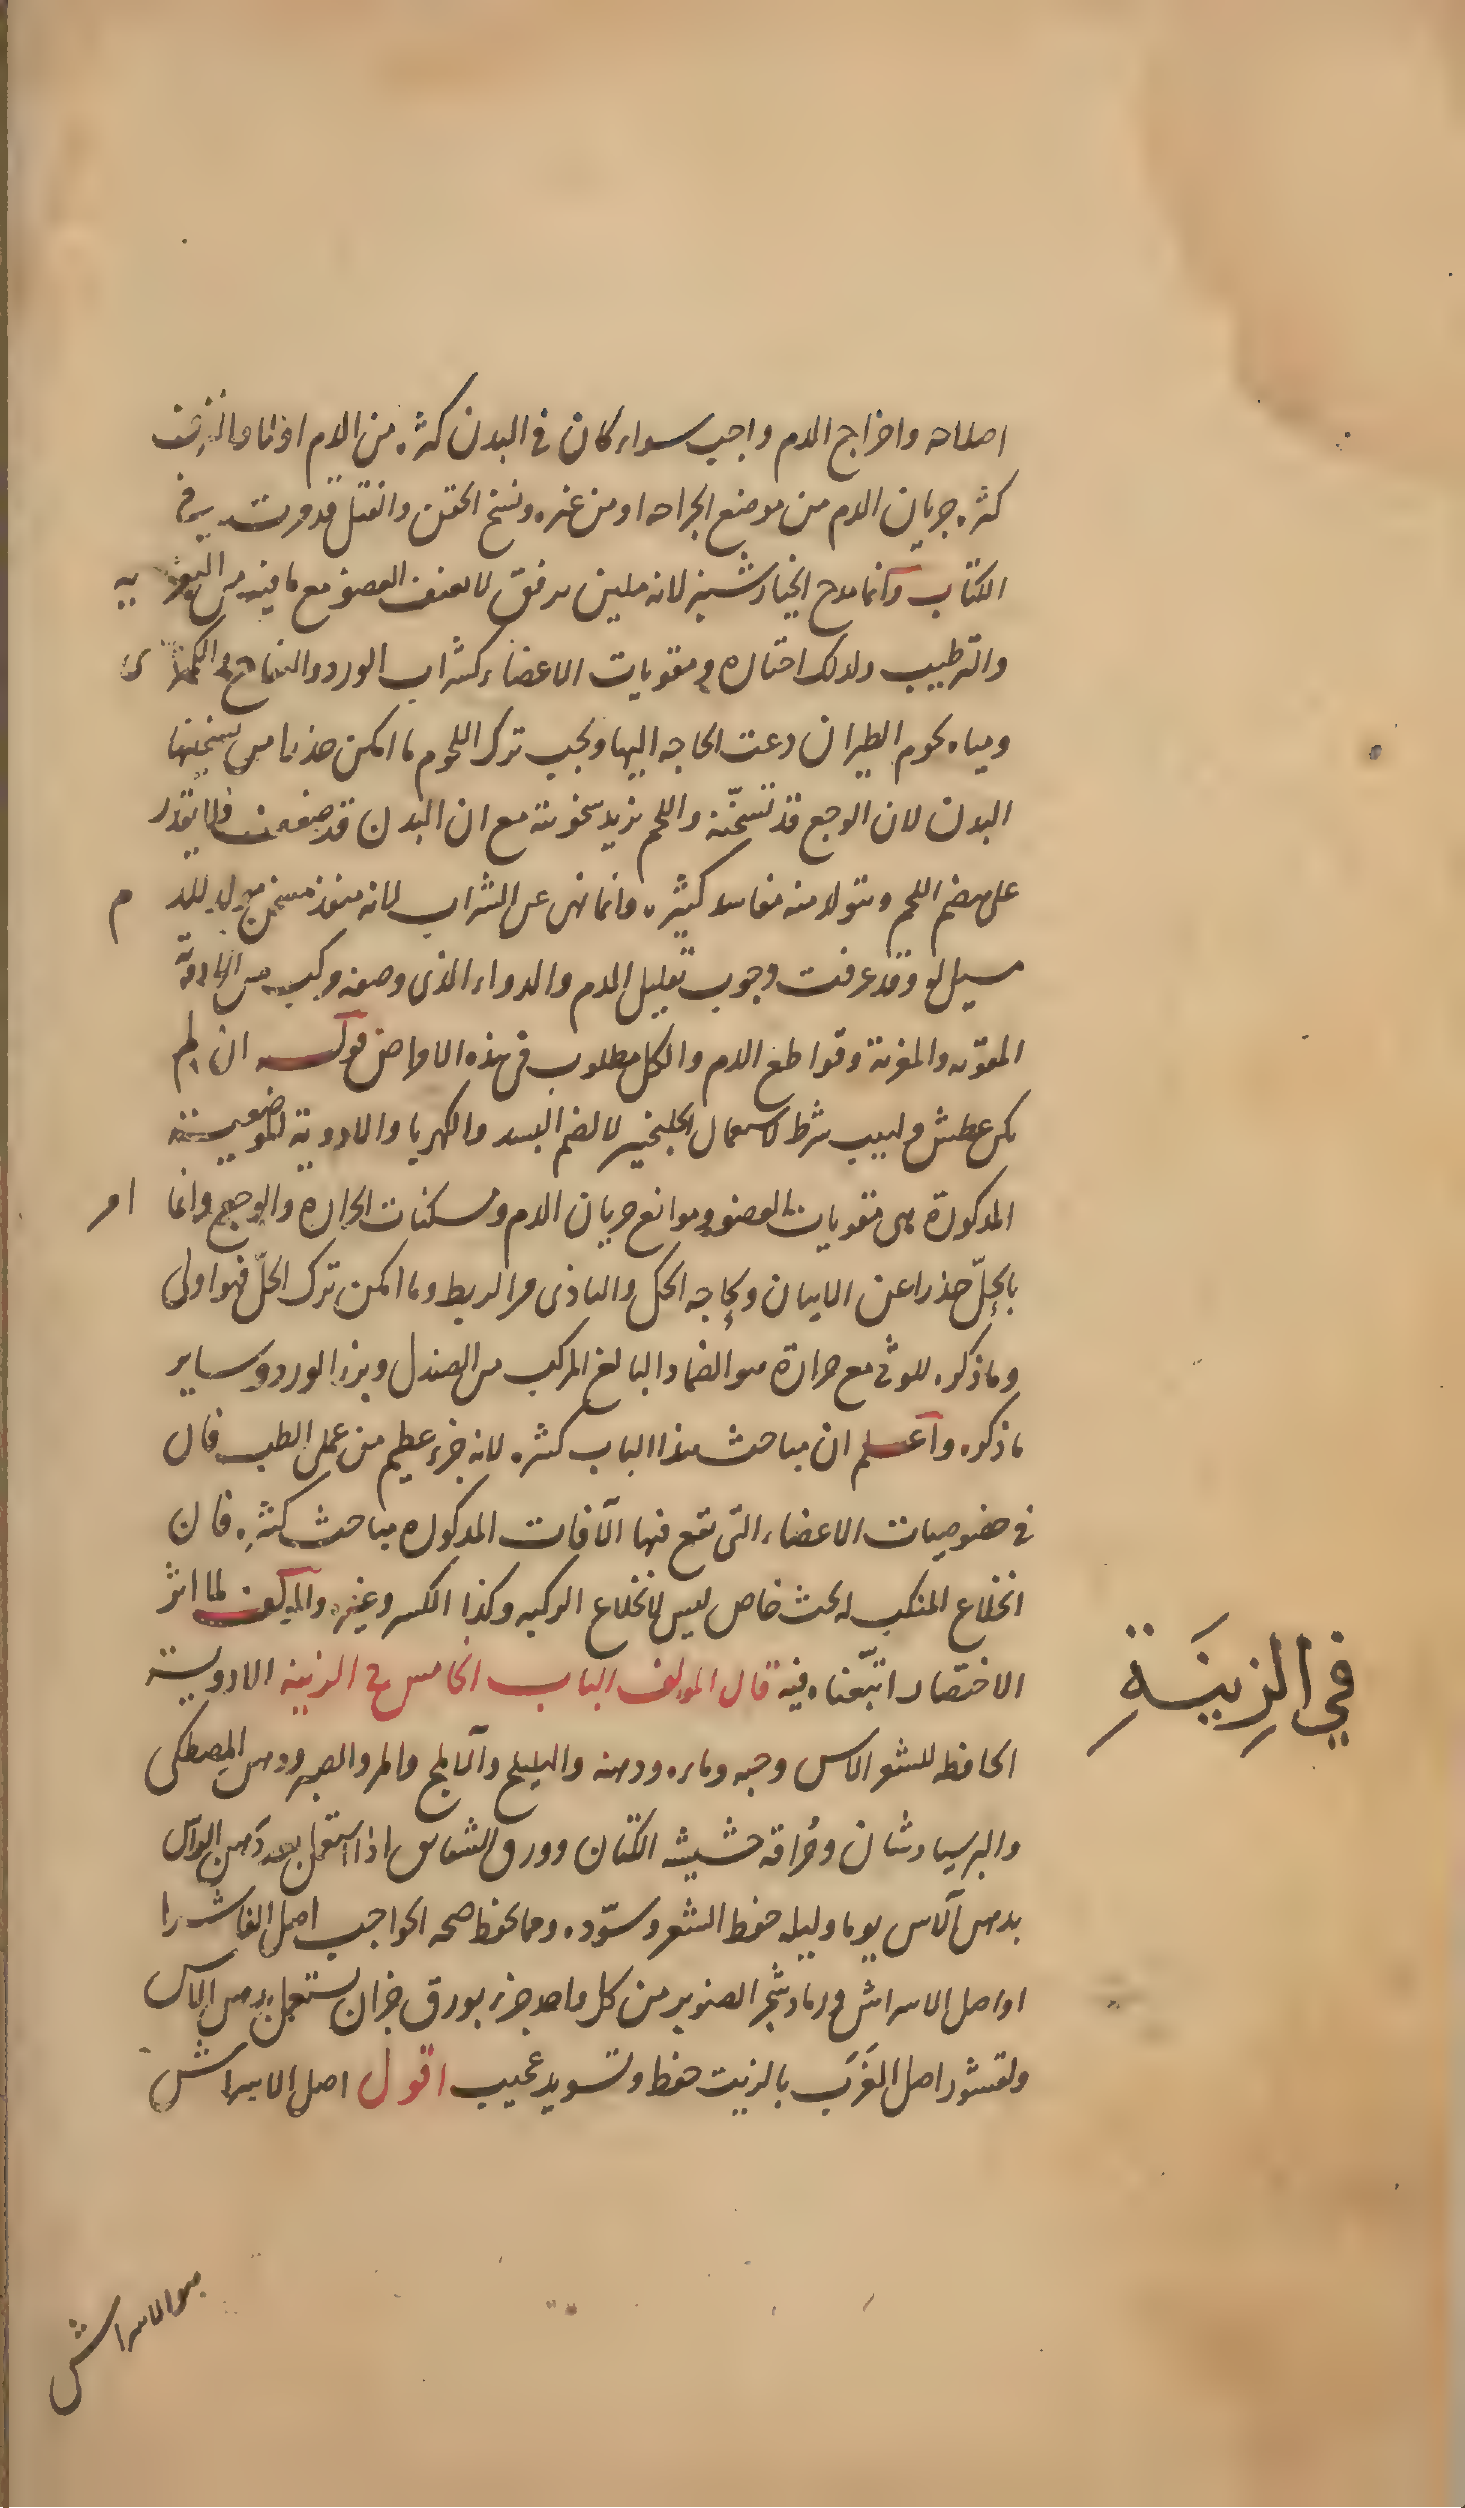 اصلاحه واخراج الدم واجب سواء كان في البدن كثرة من الدم او لا والنزف
كثرة جريان الدم من موضع الجراحه او من غيره ونسخ الحقن والفتل قد مرت في
الكتاب وانما مدح الخيارشنبر لانه ملين برفق لا يعنف العضو مع ما فيه من التبريد
والترطيب ولذلك اختاره ومقويات الاعضاء كشراب الورد والتفاح والكمثرى
ومياه لحوم الطير ان دعت الحاجه اليها ويجب ترك اللحوم ما امكن حذرا من تسخينها
البدن لان الوجع قد تسخّنه واللحم يزيد سخونته مع ان البدن قد ضعف فلا يقدر
على هضم اللحم ويتولد منه مفاسد كثيره وانما نهى عن الشراب لانه منفذ مسخن مولد للدم
مسيل له وقد عرفت وجوب تقليل الدم والدواء الذى وصفه مركب من الادوية
المقويه والمغرية وقواطع الدم والكل مطلوب فى هذه الامراض قوله ان لم
يكن عطش ولهيب شرط لاستعمال الجلنجبين لا لضم البسد والكهربا والادوية الموضعية
المذكورة هى مقويات العضو وموانع جريان الدم ومسكنات الحراره والوجع وانما امر
بالحلّ حذرا عن الايبان ولحاجه الحك والتاذى من الربط وما امكن ترك الحلّ فهو اولى
وما ذكره للوثى مع حرارة هو الضماد البالغ المركب من الصندل وبزر الورد وساير
ما ذكره واعلم ان مباحث هذا الباب كثيره لانه جزء عظيم من عمل الطب فان
في خصوصيات الاعضاء التى تقع فيها الآفات المذكوره مباحث كثيره فان
انخلاع المنكب له بحث خاص ليس لانخلاع الركبه وكذا الكسر وغيره والمؤلف لما اثر
الاختصار اتبّعناه فيه قال المولف الباب الخامس في الزينه الادوية
الحافظه للشعر الآس وحبه وماءه ودهنه والهليلج والآملج والمر والصبر ودهن المصطكى
والبرسياوشان وحُراقه حشيشه الكتان وورق الشقايق اذا استعمل بعد دهن الآس
بدهن الآس يوما وليله حفظ الشعر وسوّده ومما يحفظ صحه الحواجب اصل الفاشرا
او اصل الاسراش ورماد شجر الصنوبر من كل واحد جزء بورق جزان يستعمل بدهن الآس
ولقشور اصل الغَرَب بالزيت حفظ وتسويد عجيب اقول اصل الاسراش
في الزِينَةِ
هو الاسراش